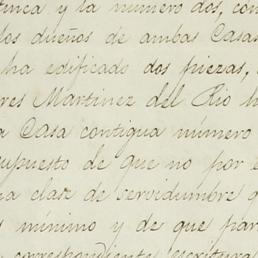 finca y la numero dos, con
los dueños de ambas Casas
ha edificado dos piezas,
res Martinez del Rio h
a Casa contigua número
supuesto de que no por e
na clase de servidumbre q
s mínimo y de que par
correspondiente escritura